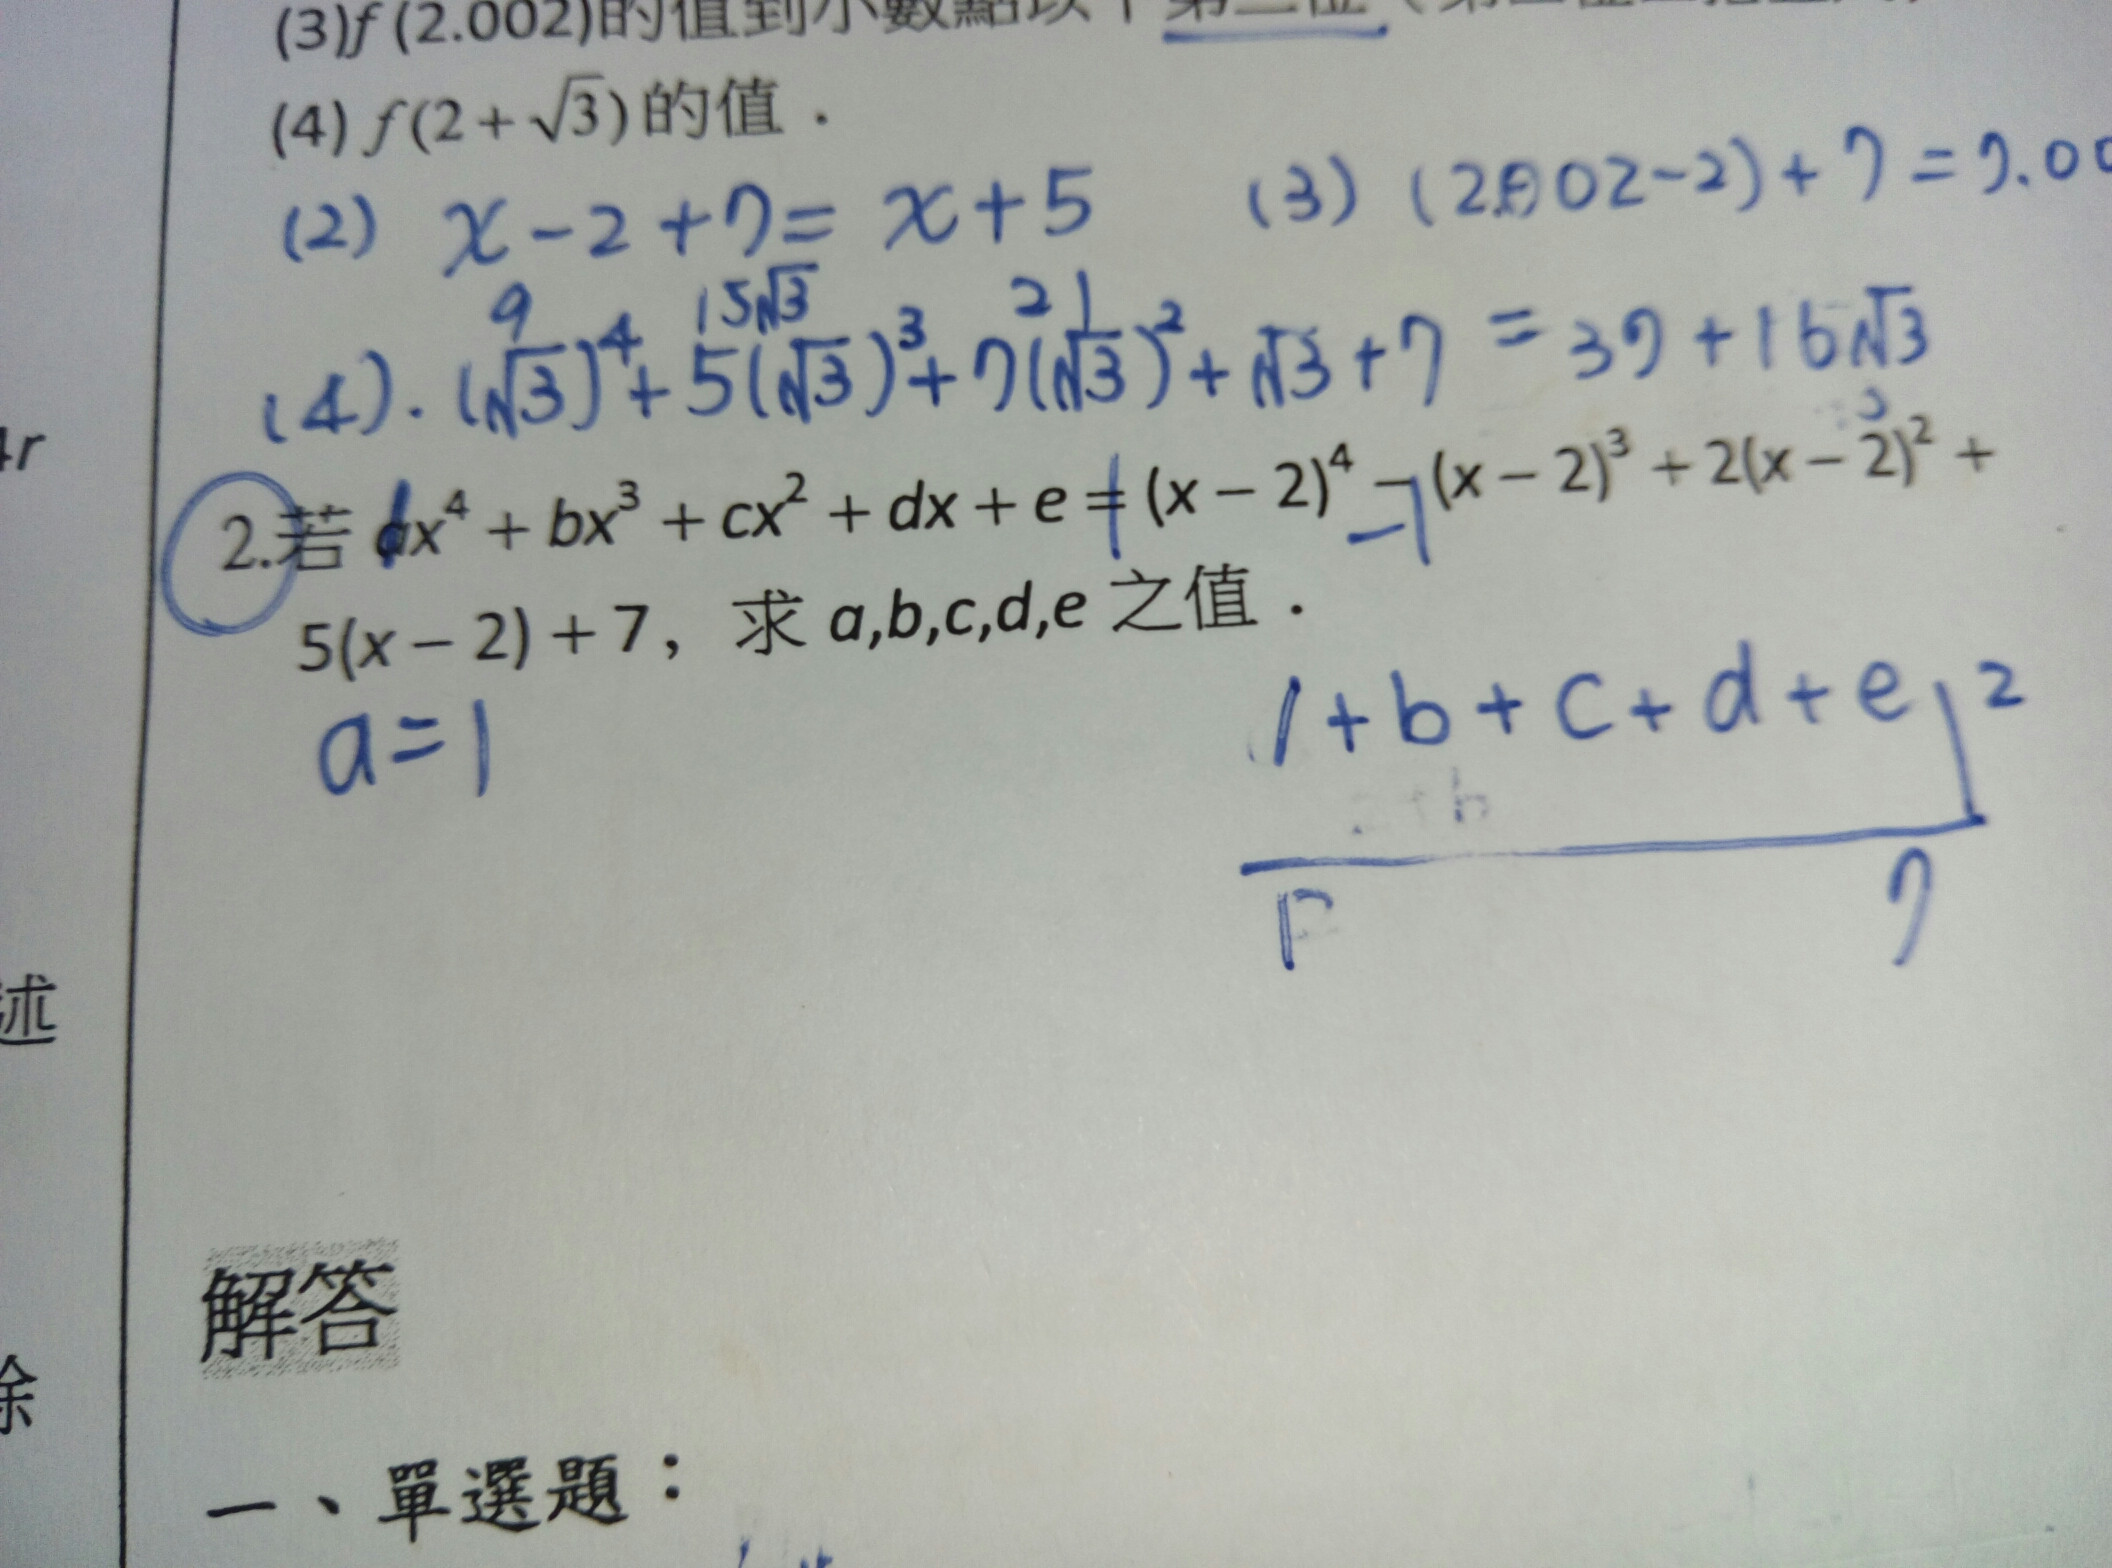 (3)f(2.002)的值到小數點以下第三位(第
(4) f(2+√3)的值.
(2) x-2+7= x+5
(3) (2.002-2)+7=7.00
9 15√3 21
(4). (√3)⁴+5(√3)³+7(√3)²+√3+7=37+16√3
4r
2.若 ax⁴+bx³+cx²+dx+e=(x-2)⁴-(x-2)³+2(x-2)²+
1 -1
5(x-2)+7, 求 a,b,c,d,e 之值.
a=1
1+b+c+d+e 2
7
述
解答
除
一、單選題: